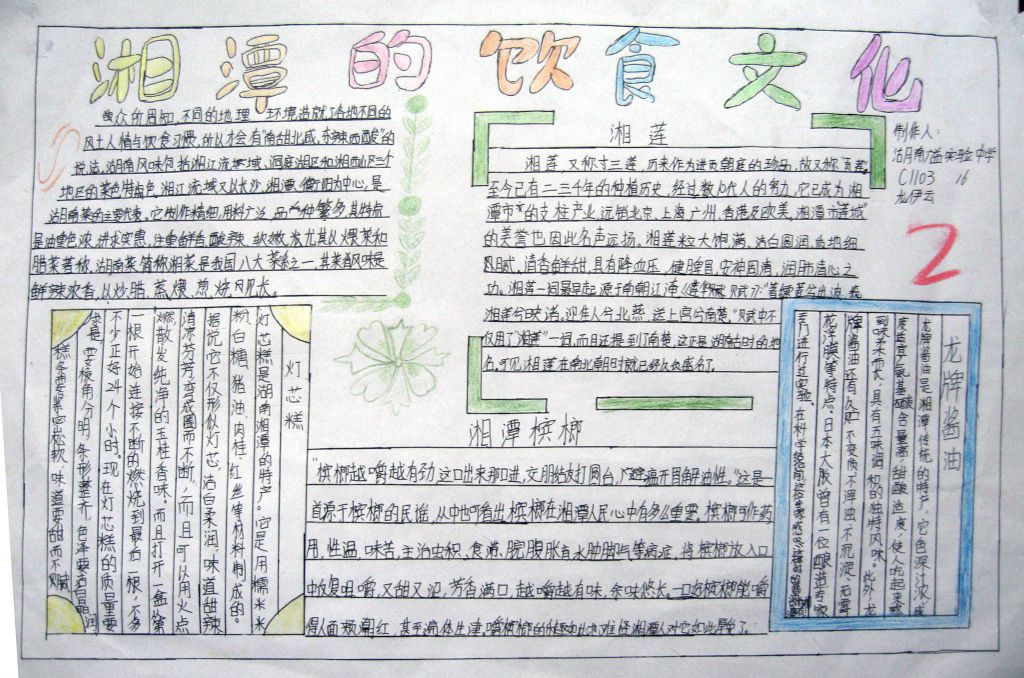 湘潭的饮食文化
众所周知,不同的地理 环境造就了各地不同的
风土人情与饮食习惯,所以才会有"南甜北咸,东辣西酸"的
说法。湖南风味包括湘江流域、洞庭湖区和湘西山区三个
地区的菜色特色。湘江流域又以长沙、湘潭、衡阳为中心,是
湖南菜的主要代表。它制作精细,用料广泛,品种繁多,其特点
是油重色浓,讲求实惠,注重鲜香、酸辣、软嫩,尤其以煨菜和
腊菜著称。湖南菜简称湘菜是我国八大菜系之一,其菜香风味是
鲜辣浓香,以炒、腊、蒸、煨、煎、烧见长。
湘莲
湘莲,又称寸三莲,历来作为进贡朝庭的珍品,故又称"贡莲"
至今已有二三千年的种植历史,经过数代人的努力,它已成为湘
潭市的支柱产业,远销北京、上海、广州、香港及欧美,湘潭市"莲城"
的美誉也因此名声远扬。湘莲粒大饱满、洁白圆润、质地细
腻,清香鲜甜,具有降血压,健脾胃,安神固精,润肺清心之
功。湘莲一词最早起源于南朝江淹
湘莲兮映渚。迎佳人兮北燕,送上宫兮南楚。"赋中不
仅用了"湘莲"一词,而且还提到了南楚,这正是湖南古时的地
名,可见湘莲在南北朝时就已经久负盛名了。
制作人:
湖南广益实验中学
C1103 16
龙伊云
2
灯芯糕
灯芯糕是湖南湘潭的特产。它是用糯米米
粉、白糖、猪油、肉桂、红丝等材料制成的。
据说它不仅形似灯芯,洁白柔润,味道甜辣
清凉芬芳,弯成圈而不断,而且可以用火点
燃,散发纯净的玉桂香味。而且打开一盒,从第
一根开始连接不断的燃烧到最后一根,不多
不少正好24个小时。现在灯芯糕的质量要
求是:要棱角分明,条形整齐,色泽要洁白晶润
糕条要紧密松软,味道要甜而不腻。
湘潭槟榔
"槟榔越嚼越有劲,这口出来那口进,交朋结友打圆台,避瘟开胃解油性。"这是一
首源于槟榔的民谣,从中也可看出槟榔在湘潭人民心中有多么重要。槟榔可作药
用,性温,味苦,主治虫积、食滞、脘腹胀痛、水肿脚气等病症,将槟榔放入口
中反复咀嚼,又甜又涩,芳香满口,越嚼越有味,余味悠长。一口好槟榔能嚼
得人面颊潮红,甚至遍体生津,嚼槟榔的性趣如此,难怪湘潭人对它如此钟爱了。
龙牌酱油
龙牌酱油是湘潭传统的特产,它色深汁浓,咸
度适宜,氨基酸含量高,甜酸适度,使人吃起来感
到味美而长,具有五味调和的独特风味。此外,龙
牌酱油还有久贮不变质、不浑浊、不沉淀、无霉
花浮膜等特点。日本大阪,曾有一位酿造专家
专门进行过实验。在科学结论面前